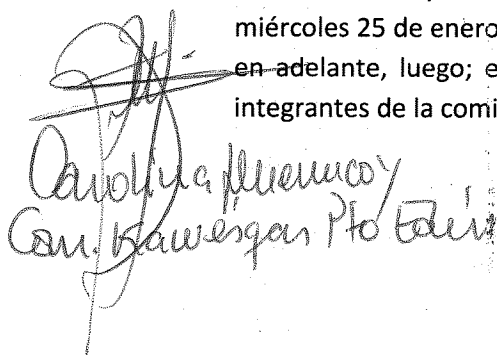 miércoles 25 de enero
en adelante, luego; e
integrantes de la comi
Carolina Huenucoy
Com. Kawesqar Pto Edén